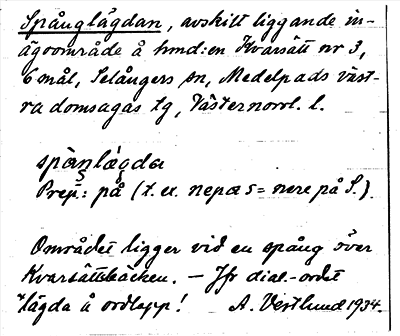 Spånglägdan, avskilt liggande in-
ägoområde å hmd:en Kvarsätt nr 3,
6 mål, Selångers sn, Medelpads väst-
ra domsagas tg, Västernorrl. l.
spàŋlę́gda
Prep.: på (t. ex. nepa S = nere på S.).
Området ligger vid en spång över
Kvarsättsbäcken. — Jfr dial.-ordet
*lägda å ordlapp! A. Vestlund 1934.